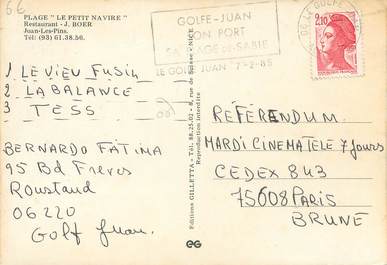 6€
PLAGE " LE PETIT NAVIRE "
Restaurant - J. BOER
Juan-Les-Pins.
Tél: (93) 61.38.56.
GOLFE-JUAN
SON PORT
SA PLAGE DE SABLE
LE GOLFE JUAN 7-2-85
2,10
1 LE VIEU FUSIL
2 LA BALANCE
3 TESS
BERNARDO FATIMA
95 Bd Frères
Roustand
06220
Golf Juan.
Editions GILLETTA - Tél. 88.25.02 - 8, rue de Suisse - NICE
Reproduction interdite
REFERENDUM.
MARDI CINEMA TELE 7 Jours
CEDEX 843
75608 PARIS
BRUNE